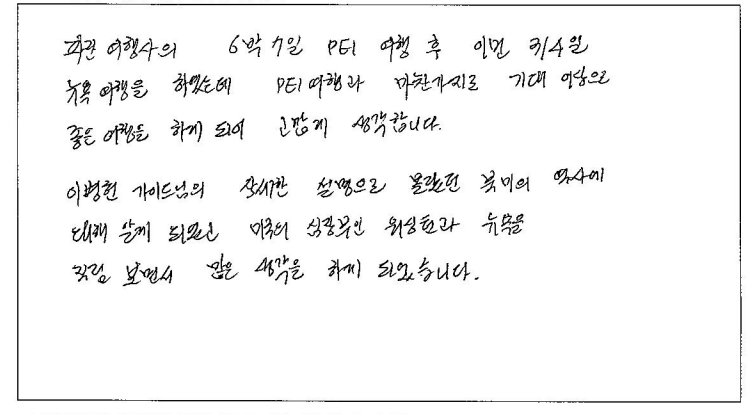 파란 여행사의 6박 7일 PEI 여행 후 이번 3/4일
뉴욕 여행을 하였는데 PEI 여행과 마찬가지로 기대 이상으로
좋은 여행을 하게 되어 고맙게 생각합니다.
이병헌 가이드님의 자세한 설명으로 몰랐던 북미의 역사에
대해 알게 되었고 미국의 심장부인 워싱턴과 뉴욕을
직접 보면서 많은 생각을 하게 되었습니다.